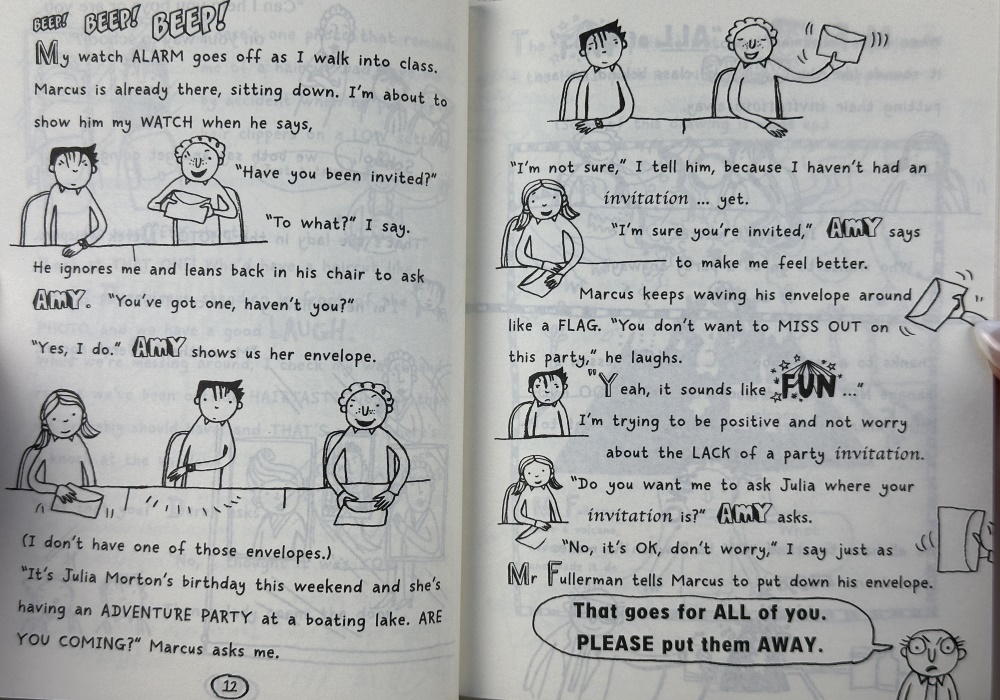 BEEP! BEEP! BEEP!
My watch ALARM goes off as I walk into class.
Marcus is already there, sitting down. I'm about to
show him my WATCH when he says,
"Have you been invited?"
"To what?" I say.
He ignores me and leans back in his chair to ask
AMY. "You've got one, haven't you?"
"Yes, I do." AMY shows us her envelope.
(I don't have one of those envelopes.)
"It's Julia Morton's birthday this weekend and she's
having an ADVENTURE PARTY at a boating lake. ARE
YOU COMING?" Marcus asks me.
12
"I'm not sure," I tell him, because I haven't had an
invitation ... yet.
"I'm sure you're invited," AMY says
to make me feel better.
Marcus keeps waving his envelope around
like a FLAG. "You don't want to MISS OUT on
this party," he laughs.
"Yeah, it sounds like FUN ..."
I'm trying to be positive and not worry
about the LACK of a party invitation.
"Do you want me to ask Julia where your
invitation is?" AMY asks.
"No, it's OK, don't worry," I say just as
Mr Fullerman tells Marcus to put down his envelope.
That goes for ALL of you.
PLEASE put them AWAY.